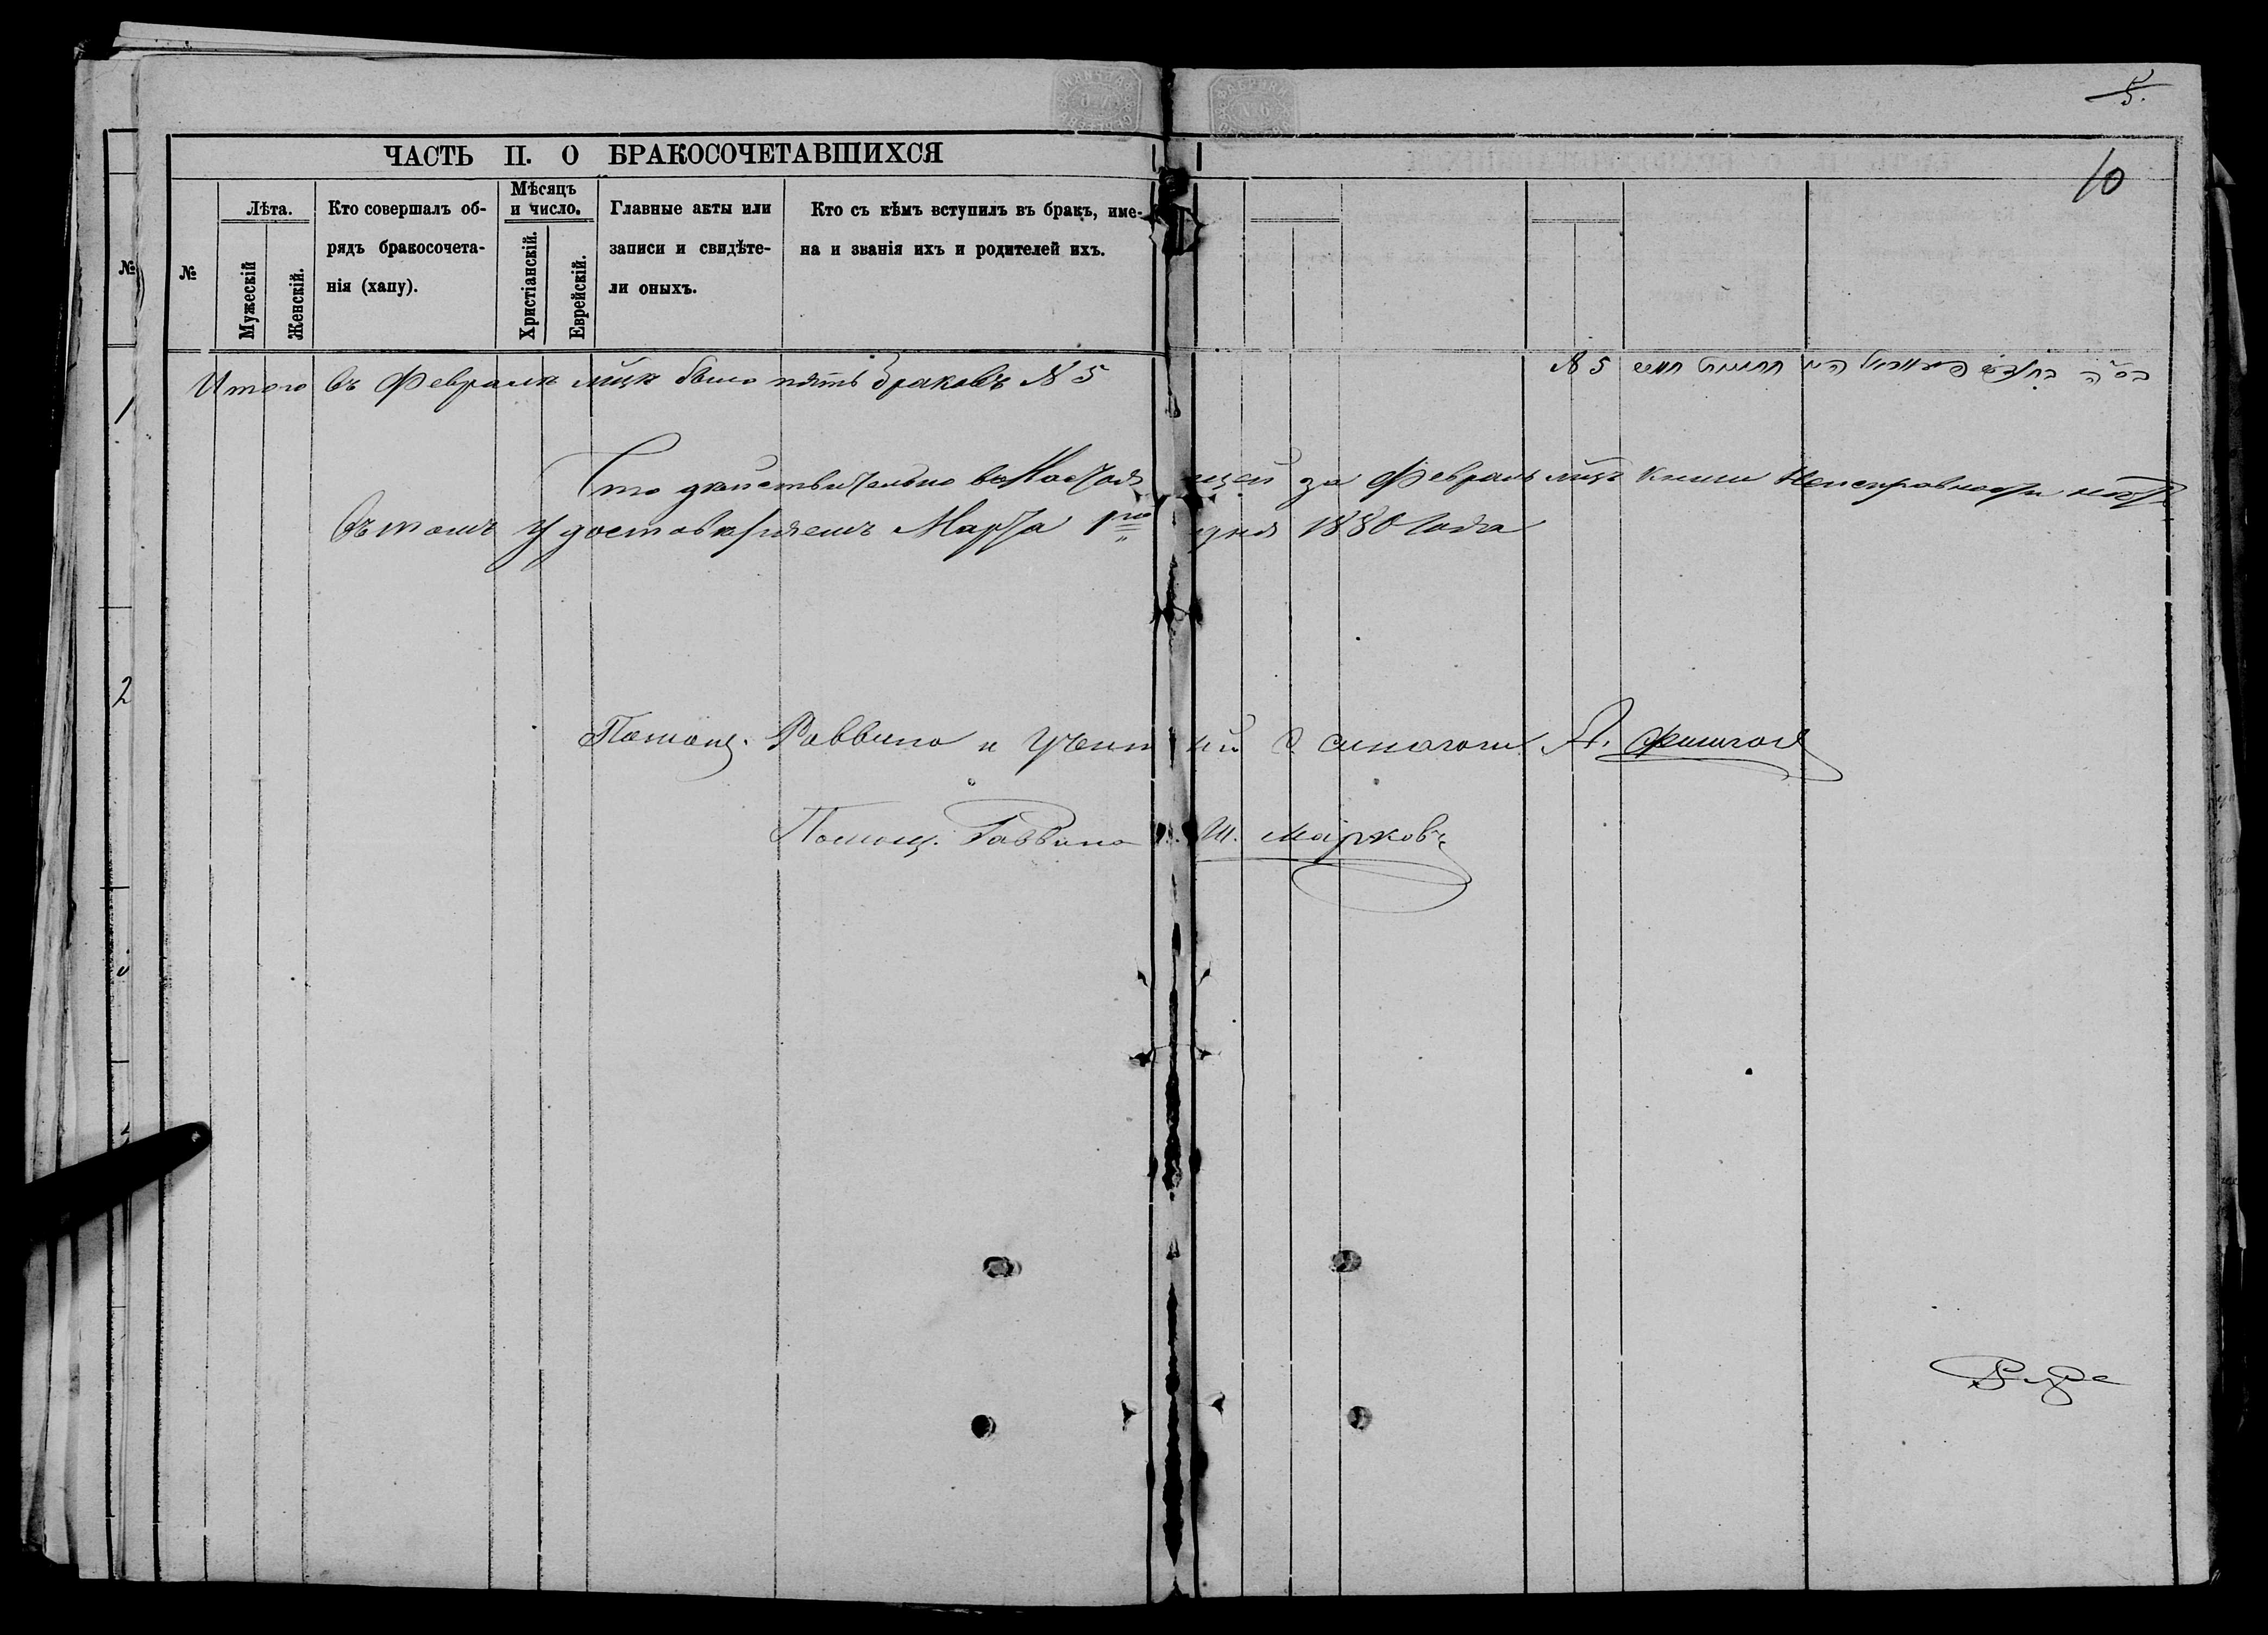 5.
10
ЧАСТЬ II. О БРАКОСОЧЕТАВШИХСЯ
№
№
Лѣта.
Мужескій
Женскій.
Кто совершалъ об-
рядъ бракосочета-
нія (хапу).
Мѣсяцъ
и число.
Христіанскій.
Еврейскій.
Главные акты или
записи и свидѣте-
ли оныхъ.
Кто съ кѣмъ вступилъ въ бракъ, име-
на и званія ихъ и родителей ихъ.
1
2
Итого въ Февралѣ м̃цѣ было пять браковъ № 5
№ 5
Что дѣйствительно въ Настоящей за Февраль м̃цъ книги Неисправности нѣтъ
Въ томъ удостовѣряемъ Марта 1го дня 1880 Года
Помощ. Раввина и Ученый С. синагоги А.
Помощ. Раввина Ш. Марковъ